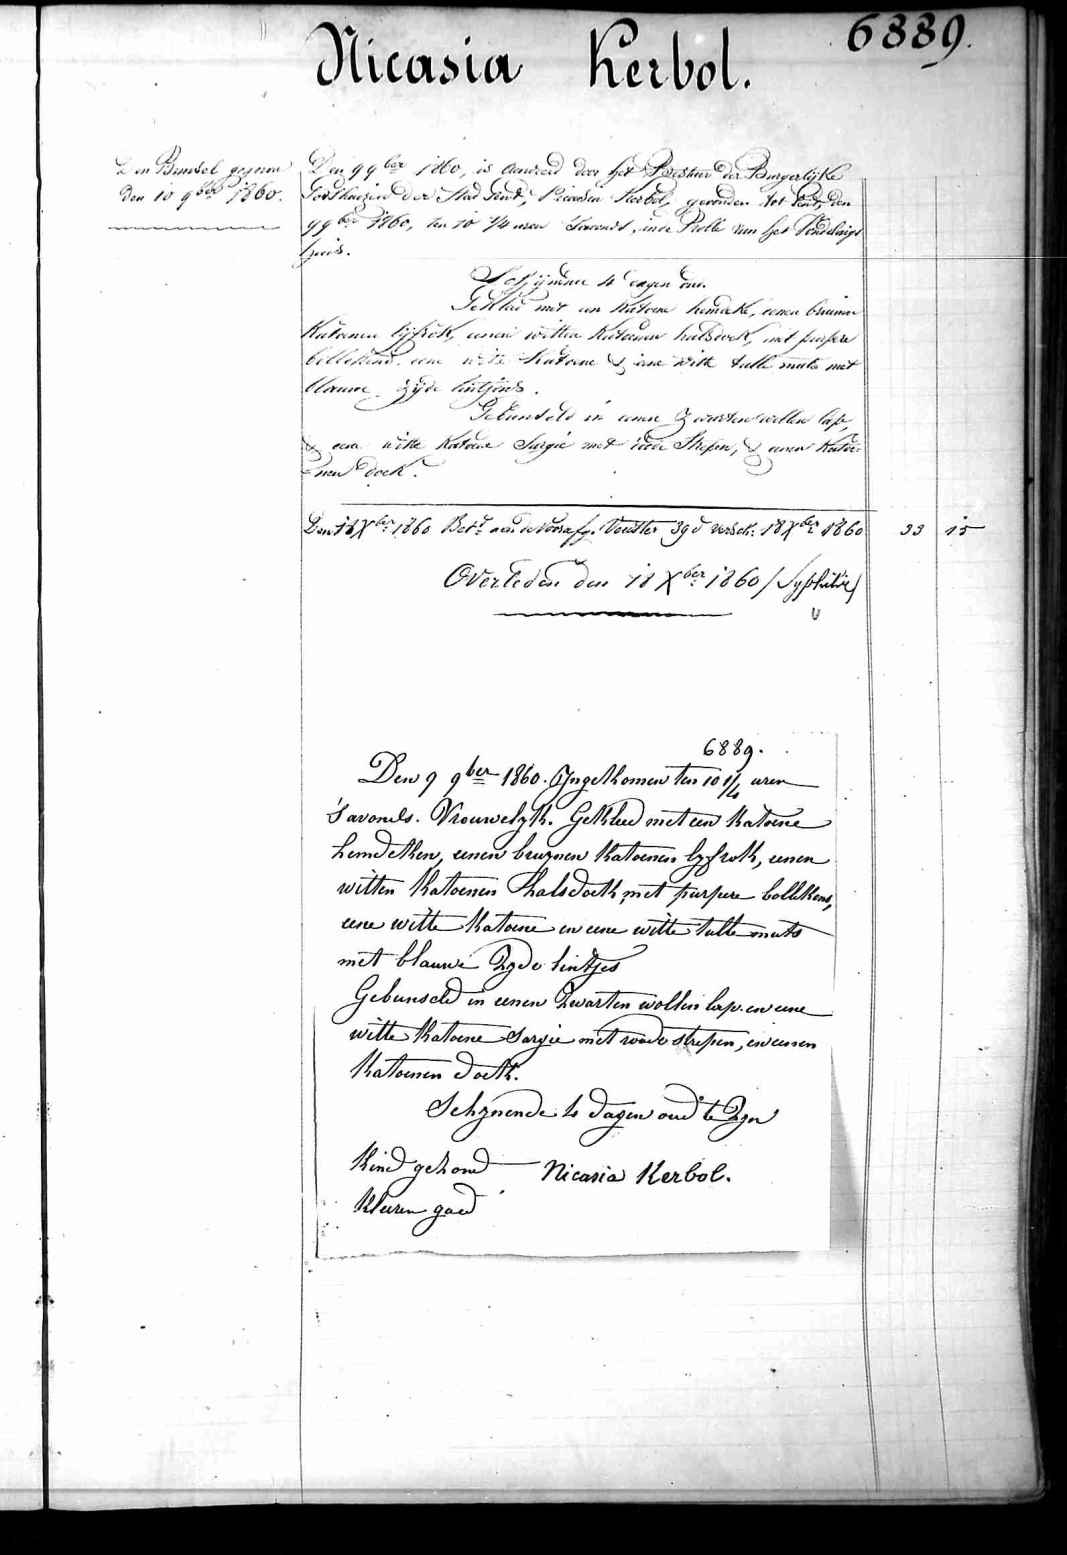 6889.
Nicasia Kerbol.
Den Bunsel
Den 10 9ber 1860.
Den 9 9ber 1860, is aenveerd door het Bestuur der Burgerlijke
Godshuizen der Stad Gent, Nicasia Kerbol, gevonden tot Gent, den
9 9ber 1860, ten 10 1/4 uren 'savonds, in de Rolle van het Vondelings
huis.
Schijnende 4 dagen oud.
Gekleed met een katoene hemdeke, eenen bruinen
katoenen lijfrok, eenen witten katoenen halsdoek, met purpere
bollekens, eene witte katoene & eene witte tulle muts met
blauwe zijde lintjens.
Gebunseld in eenen zwarten wollen lap,
& eene witte katoene sargie met roode strepen, & eenen katoe-
nen doek.
Den 18 Xber 1860 18 Xber 1860 33 15
Overleden den 18 Xber 1860 (Syphilis)
6889.
Den 9 9ber 1860. Yngekomen ten 10 1/4 uren
'savonds. Vrouwelyk. Gekleed met een katoene
hemdeken, eenen bruynen katoenen lyfrok, eenen
witten katoenen halsdoek, met purpere bollekens,
eene witte katoene en eene witte tulle muts
met blauwe zyde lintjes
Gebunseld in eenen zwarten wollen lap en eene
witte katoene sargie met roode strepen, en eenen
katoenen doek.
Schynende 4 dagen oud te zyn
Kind gezond Nicasia Kerbol.
Kleeren goed